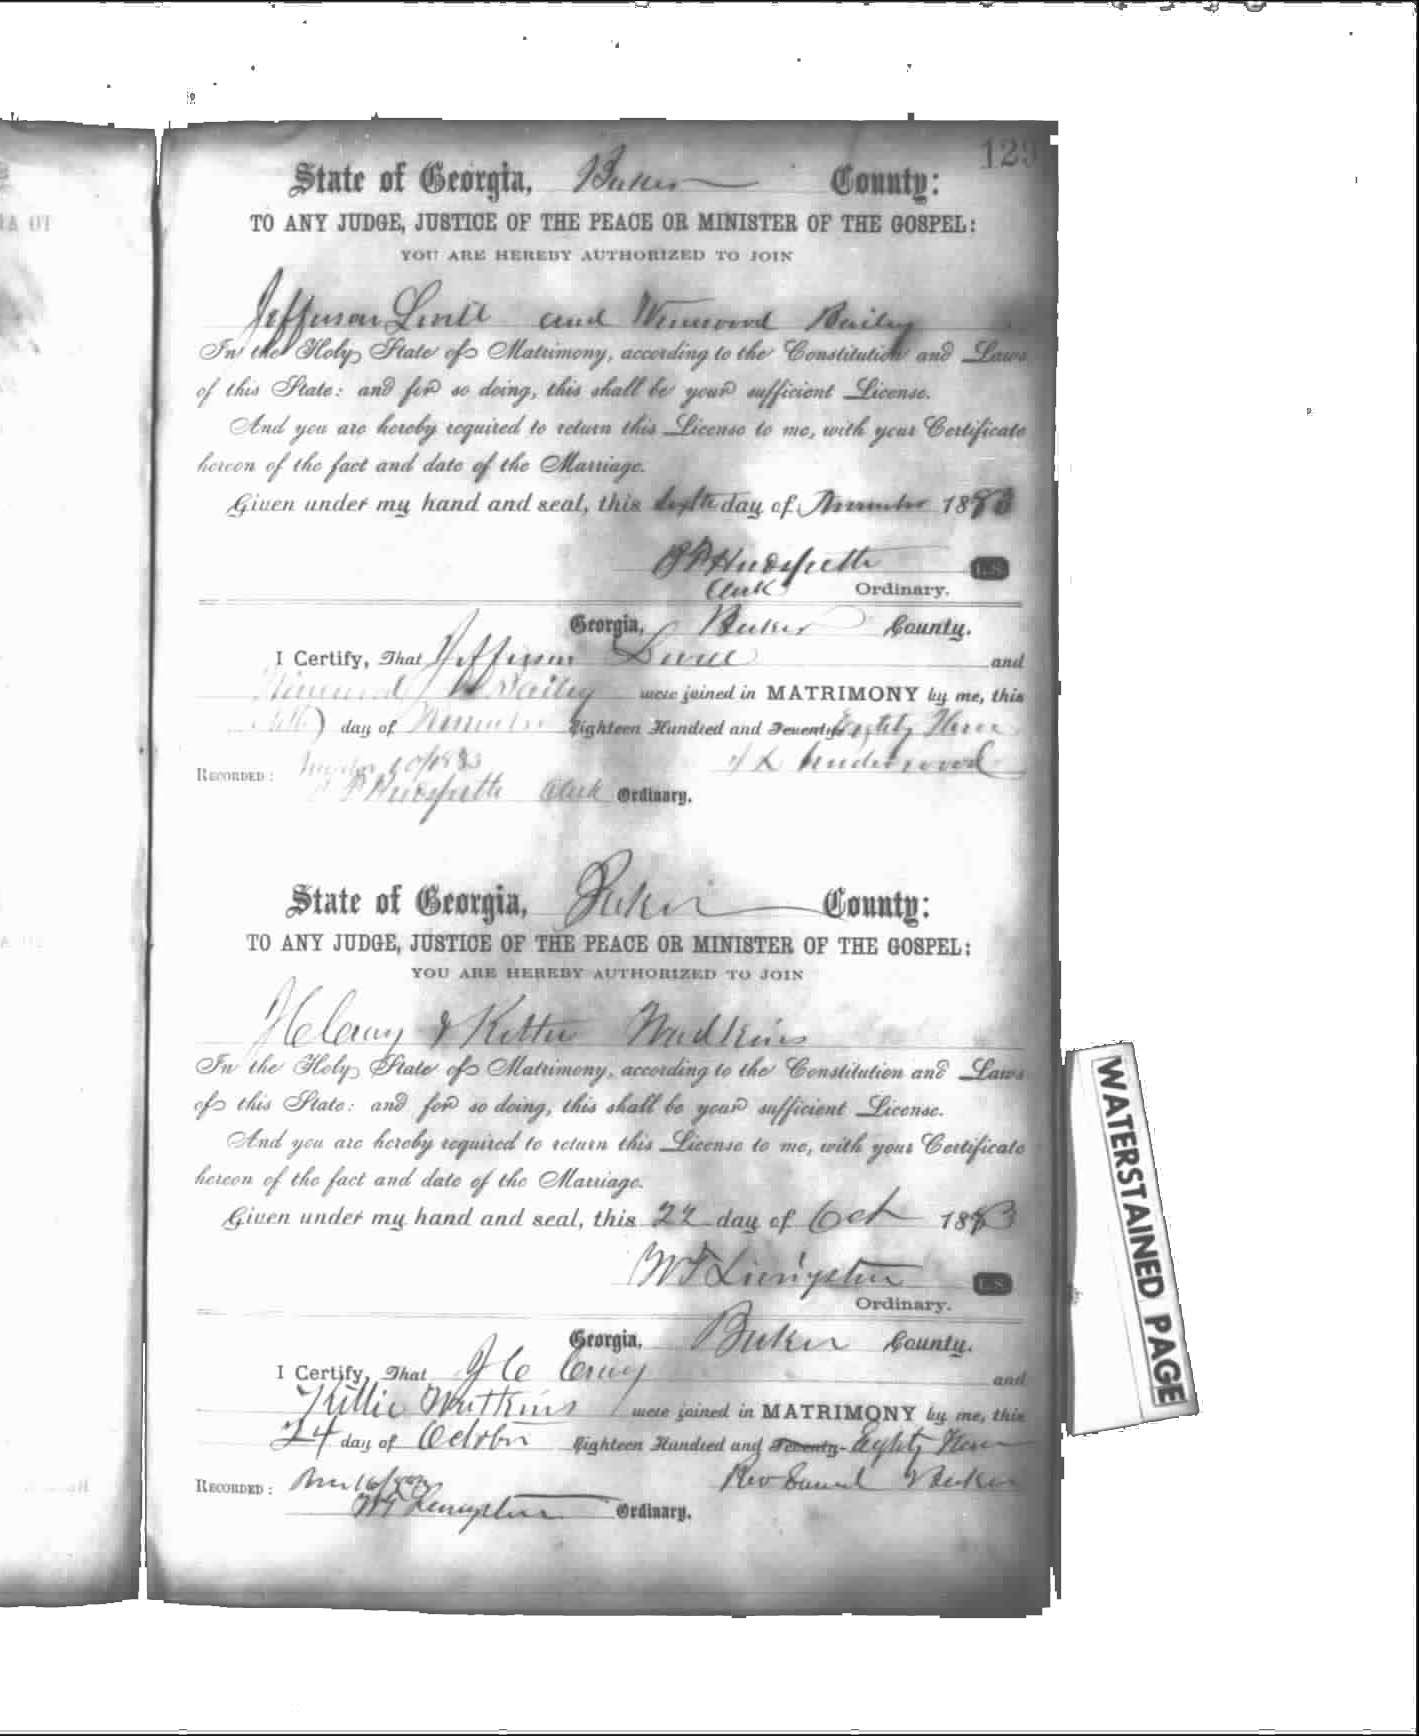 129
State of Georgia, Baker County:
TO ANY JUDGE, JUSTICE OF THE PEACE OR MINISTER OF THE GOSPEL:
YOU ARE HEREBY AUTHORIZED TO JOIN
Jefferson and Bailey
In the Holy State of Matrimony, according to the Constitution and Laws
of this State: and for so doing, this shall be your sufficient License.
And you are hereby required to return this License to me, with your Certificate
hereon of the fact and date of the Marriage.
Given under my hand and seal, this day of 1883
Hudspeth L.S.
Clerk Ordinary.
Georgia, Baker County.
I Certify, That Jefferson and
Bailey were joined in MATRIMONY by me, this
day of Eighteen Hundred and Seventy Eighty Three
Underwood
RECORDED: 10/1883
Hudspeth Clerk Ordinary.
State of Georgia, Baker County:
TO ANY JUDGE, JUSTICE OF THE PEACE OR MINISTER OF THE GOSPEL:
YOU ARE HEREBY AUTHORIZED TO JOIN
& Wadkins
In the Holy State of Matrimony, according to the Constitution and Laws
of this State: and for so doing, this shall be your sufficient License.
And you are hereby required to return this License to me, with your Certificate
hereon of the fact and date of the Marriage.
Given under my hand and seal, this 22 day of Oct 1883
W T Livingston L.S.
Ordinary.
Georgia, Baker County.
I Certify, That and
Watkins were joined in MATRIMONY by me, this
24 day of October Eighteen Hundred and Seventy- Eighty Three
Rev
RECORDED:
W T Livingston Ordinary.
WATERSTAINED PAGE